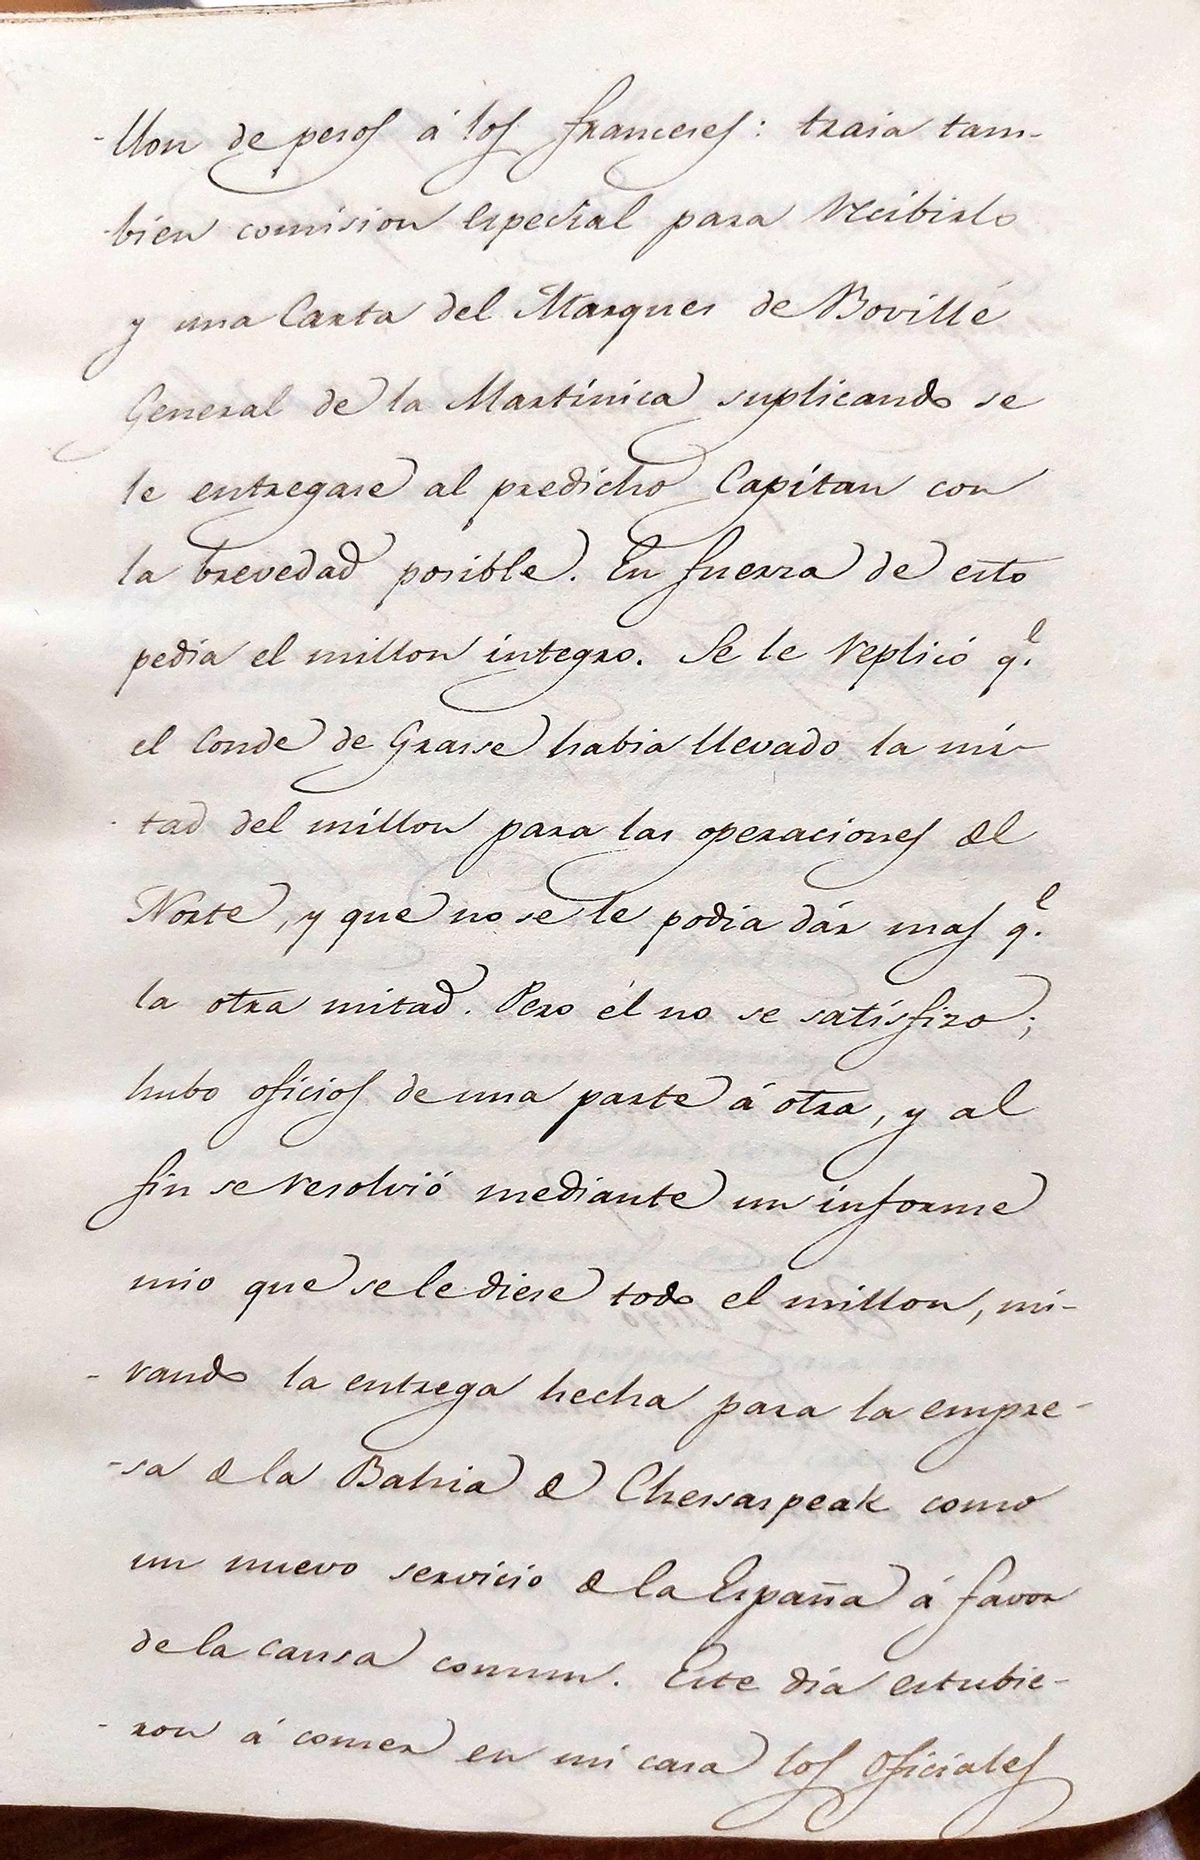 -llon de pesos á los franceses: traia tam-
-bien comision especial para recibirlo
y una Carta del Marques de Bovillé
General de la Martinica suplicando se
le entregase al predicho Capitan con
la brevedad posible. En fuerza de esto
pedia el millon integro. Se le replicó q.e
el Conde de Grasse habia llevado la mi-
tad del millon para las operaciones del
Norte, y que no se le podia dár mas q.e
la otra mitad. Pero él no se satisfizo;
hubo oficios de una parte á otra, y al
fin se resolvió mediante un informe
mio que se le diese todo el millon, mi-
-rando la entrega hecha para la empre-
-sa de la Bahia de Chessarpeak como
un nuevo servicio de la España á favor
de la causa comun. Este dia estubie-
-ron á comer en mi casa los oficiales